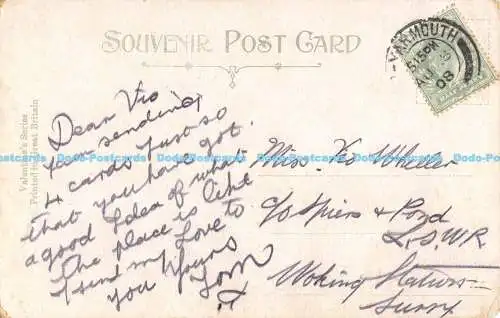 SOUVENIR POST CARD
YARMOUTH
5.15 PM
08
Valentine's Series
Printed in Great Britain
Dear Vio
I am sending
4 cards just so
that you have got
a good Idea of what
the place is like
I send my Love to
you Yours
Tom
Miss. Vio Wheller
c/o Spiers & Pond
L.S.W.R
Woking Station
Surry
Dodo-Postcards Dodo-Postcards Dodo-Postcards Dodo-Postcards